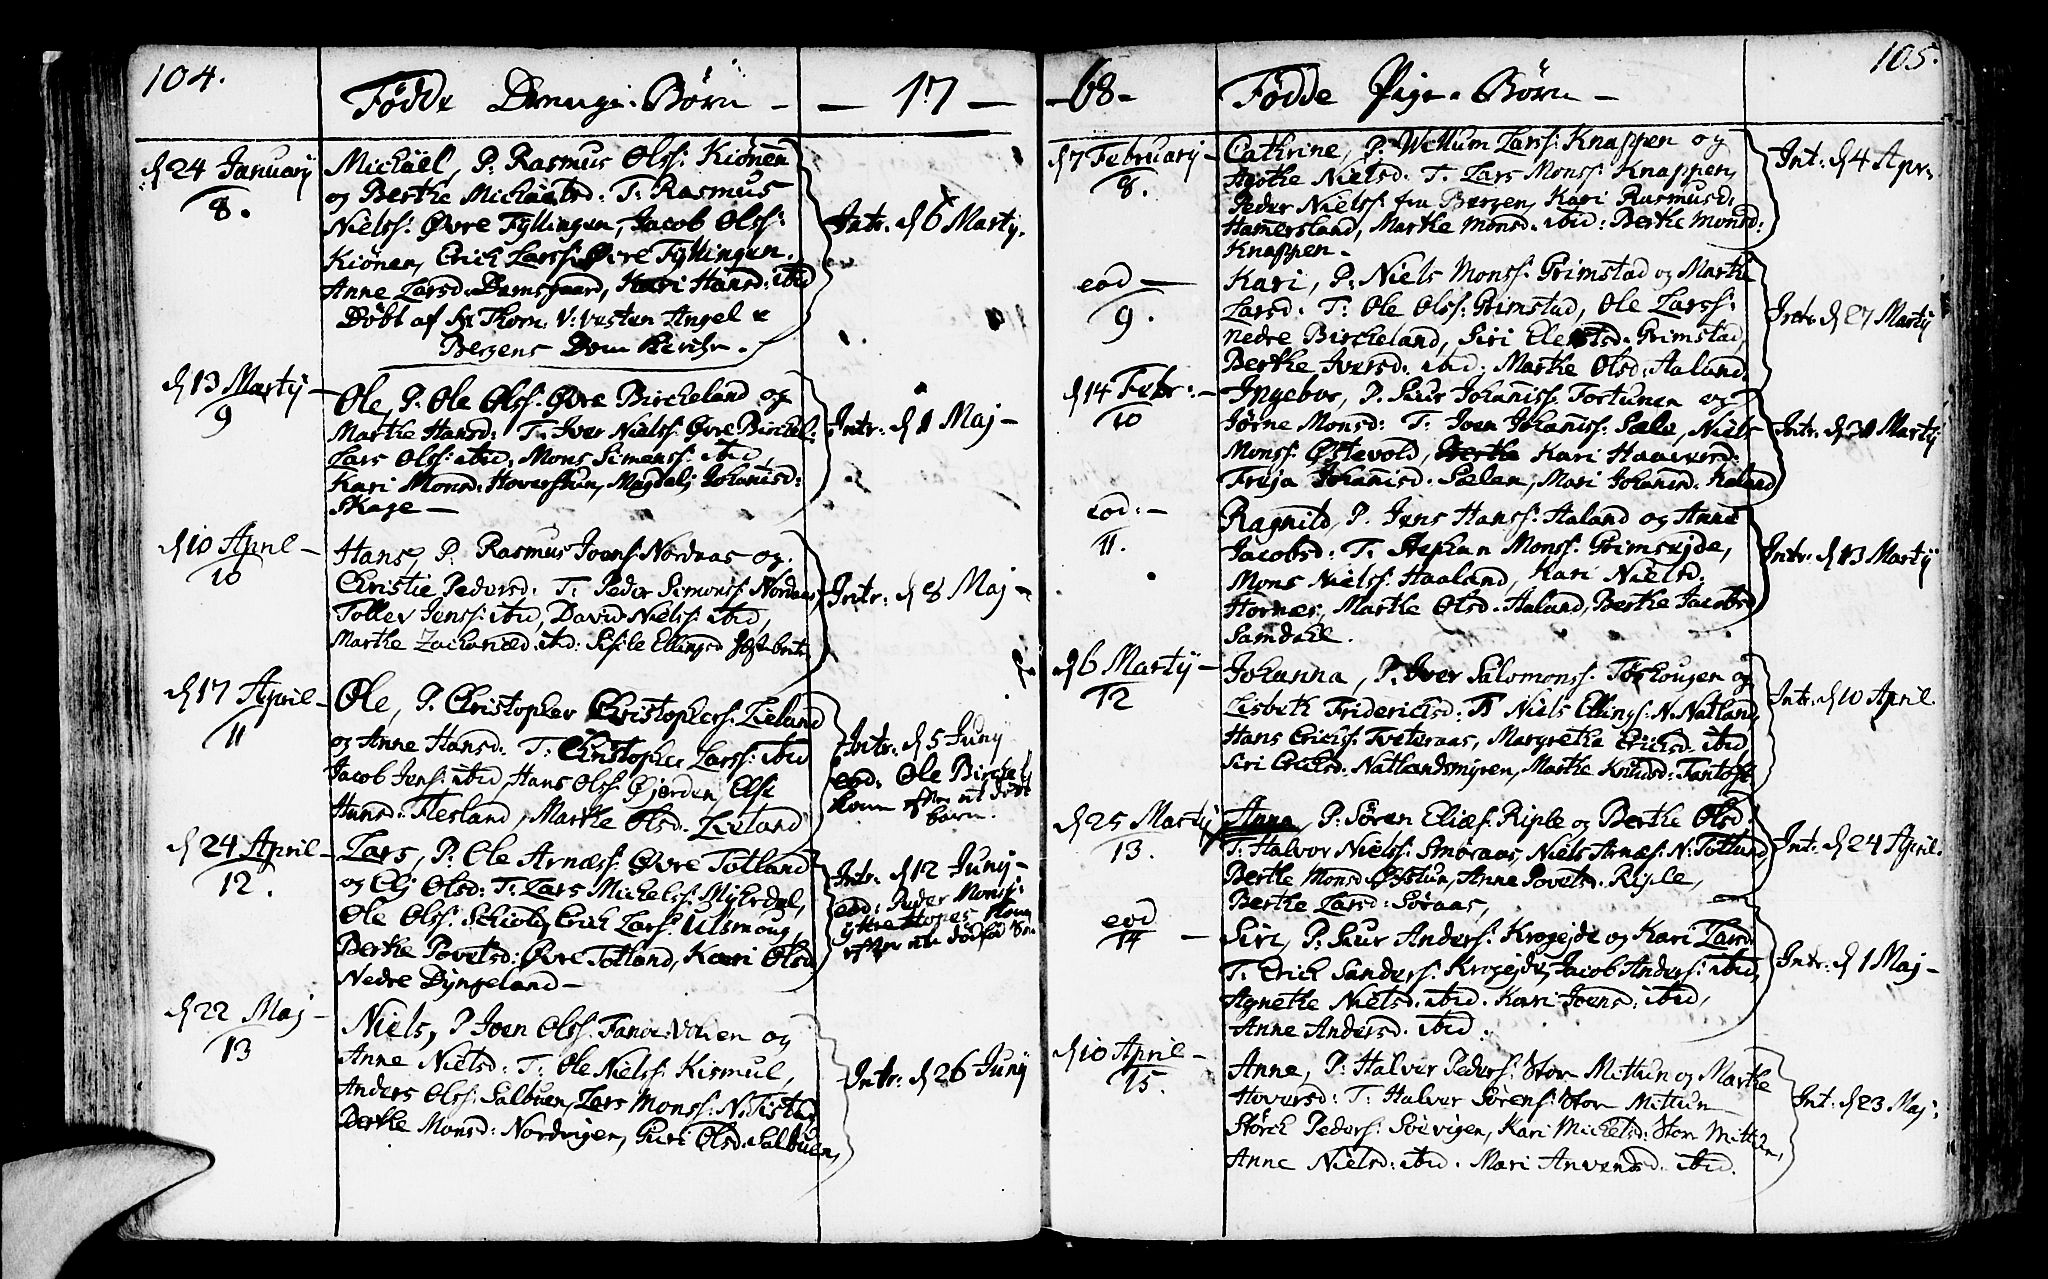 104.
Fødde Drenge-Børn - - 17 -
d 24 January
8.
Michäel, P. Rasmus Olss: Kiönen
og Berthe Michäelsd: T: Rasmus
Nielss: Øvre Fyllingen, Jacob Olss:
Kiönen, Erich Larss: Øvre Fyllingen.
Anne Larsd. Damsgaard, Kari Hansd: ibid
Döbt af Hr Thorn: V: Vesten Angel
Bergens Dom Kirche.
Intr. d 6 Martij.
d 13 Martij -
9
Ole, P. Ole Olss: Øvre Bircheland og
Marthe Hansd: T. Iver Nielss: Øvre Birchel:
Lars Olss: ibid, Mons Simenss: ibid,
Kari Monsd: Hoverstuen, Magdeli Johanisd:
Skage -
Intr: d 1 Maj -
d 10 April -
10
Hans, P. Rasmus Joens: Nordaas og
Christie Pedersd: T: Peder Simonss: Nordaas
Tollev Jenss: ibid, David Nielss: ibid,
Marthe Zachariæd. ibid: Sissile Ellingsd
Intr: d 8 Maj -
d 17 April -
11
Ole, P. Christopher Christophers: Lieland
og Anne Hansd: T: Christopher Larss: ibid
Jacob Jens: ibid, Hans Olss: Øjorden, Else
Hansd: Flesland, Marthe Olsd. Lieland
Intr: d 5 Junij
eod: Ole Birchel:
Kone efter et død
barn.
d 24 April -
12.
Lars, P: Ole Arnæss: Øvre Totland
og Eli Olsd: T: Lars Michelss: Myhrdal,
Ole Olss: Schiold, Erich Larss: Ulsmoug,
Berthe Povelsd: Øvre Totland, Kari Olsd
Nedre Dyngeland -
Intr: d 12 Junij -
eod: Peder Monss:
Ytre Hopes Kone
efter en dødfød Sön
d 22 Maj -
13
Niels, P. Joen Olss: Fanoe: Vehen og
Anne Nielsd: T: Ole Nielss: Kismul,
Anders Olss: Salbuen, Lars Monss: N. Titlestad
Berthe Monsd: Nordvigen, Guri Olsd. Salbuen,
Intr: d 26 Junij
105.
- 68 - Fødde Pige-Børn -
d 7 February -
8.
Cathrine, P: Willum Larss: Knappen og
Agathe Nielsd: T. Lars Monss: Knappen,
Peder Nielss: fra Bergen, Kari Rasmusd:
Hamersland, Marthe Monsd. ibid: Berthe Monsd:
Knappen -
Int: d 4 Apr:
eod -
9.
Kari, P: Niels Monss: Grimstad og Marthe
Larsd. T: Ole Olss: Grimstad, Ole Larss:
nedre Bircheland, Siri Elertsd. Grimstad,
Berthe Iversd: ibid: Marthe Olsd: Haland.
Intr. d 27 Martij
d 14 Febr: -
10
Ingebor, P. Siur Johaniss: Fortunen og
Jörne Monsd: T: Joen Johaniss: Sæle, Niels
Monss: Østevold, Kari Haaverd:
Johanisd. Sælen, Mari Johansd. Haland
Intr. d 31 Martij
eod: -
11.
Ragnild, P. Jens Hanss: Haland og Anne
Jacobsd: T: Stephan Monss: Grimsejde,
Mons Nielss: Haaland, Kari Nielsd.
Hornæs, Marthe Olsd. Haland, Berthe Jacobsd
Samdahl.
Intr. d 13 Martij
d 6 Martij -
12
Johanna, P. Iver Salomonss: Tøshougen og
Lisbeth Fridericksd: T: Niels Ellings: N. Natland,
Hans Erichs: Tveteraas, Margrethe Erichsd. ibid
Siri Erichsd. Natlandsmyren, Marthe Knudsd: Fantoft
Intr. d 10 April.
d 25 Martij
13.
Anna, P: Sören Eliæs: Riple og Berthe Olsd.
T. Halvor Nielss: Smøraas, Niels Arnæs: N: Totland
Berthe Monsd. Øvstun, Anne Povelsd. Riple,
Berthe Larsd: Søraas,
Int: d 24 April.
eod
14 -
Siri, P: Siur Anders: Krogejde og Kari Larsd
T. Erich Sanders: Krogejde, Jacob Anders: ibid,
Agnethe Nielsd. ibid. Kari Joensd: ibid,
Anne Andersd. ibid.
Intr. d 1 Maj -
d 10 April -
15.
Anne, P: Halver Peders: Stor Mittun og Marthe
Hoversd: T: Halver Sörens: Stor Mittun
Störck Peders: Söevigen, Kari Michelsd: Stor Mittun,
Anne Nielsd: ibid. Mari Anvendsd. ibid.
Int: d 23 Maj: